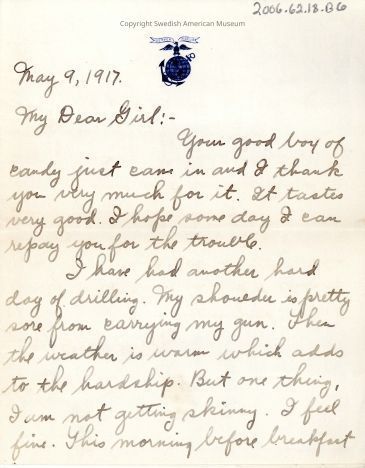 Copyright Swedish American Museum
2006.62.18.B6
May 9, 1917.
My Dear Girl:-
Your good box of
candy just came in and I thank
you very much for it. It tastes
very good. I hope some day I can
repay you for the trouble.
I have had another hard
day of drilling. My shoulder is pretty
sore from carrying my gun. Then
the weather is warm which adds
to the hardship. But one thing,
I am not getting skinny. I feel
fine. This morning before breakfast